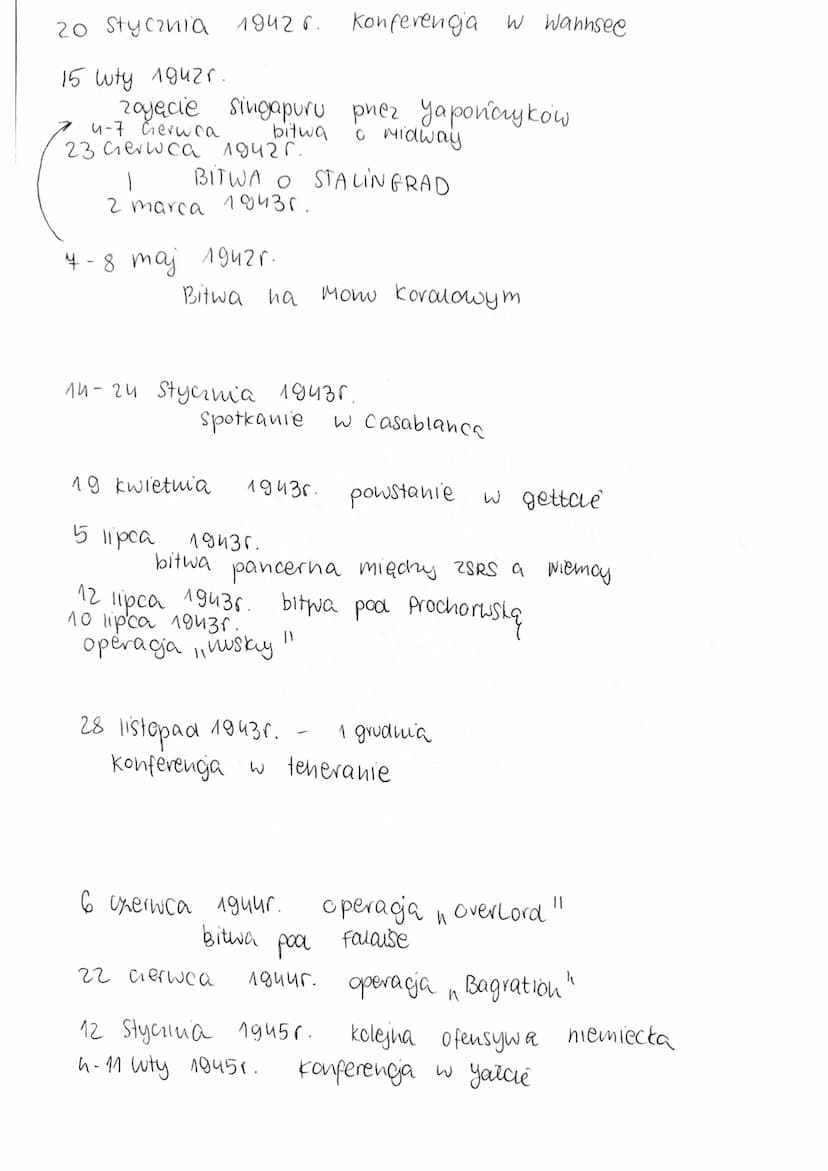 20 stycznia 1942 r. konferencja w Wannsee
15 luty 1942r.
zajęcie Singapuru przez Japończyków
4-7 czerwca bitwa o Midway
23 czerwca 1942r.
| BITWA O STALINGRAD
2 marca 1943r.
7-8 maj 1942r.
Bitwa na Morzu Koralowym
14-24 stycznia 1943r.
spotkanie w Casablance
19 kwietnia 1943r. powstanie w gettcie
5 lipca 1943r.
bitwa pancerna między ZSRS a Niemcy
12 lipca 1943r. bitwa pod Prochorwską
10 lipca 1943r.
operacja „Husky"
28 listopad 1943r. - 1 grudnia
Konferencja w teheranie
6 czerwca 1944r. operacja „Overlord"
bitwa pod Falaise
22 czerwca 1944r. operacja „Bagration"
12 stycznia 1945r. kolejna ofensywa niemiecka
4-11 luty 1945r. konferencja w Jałcie